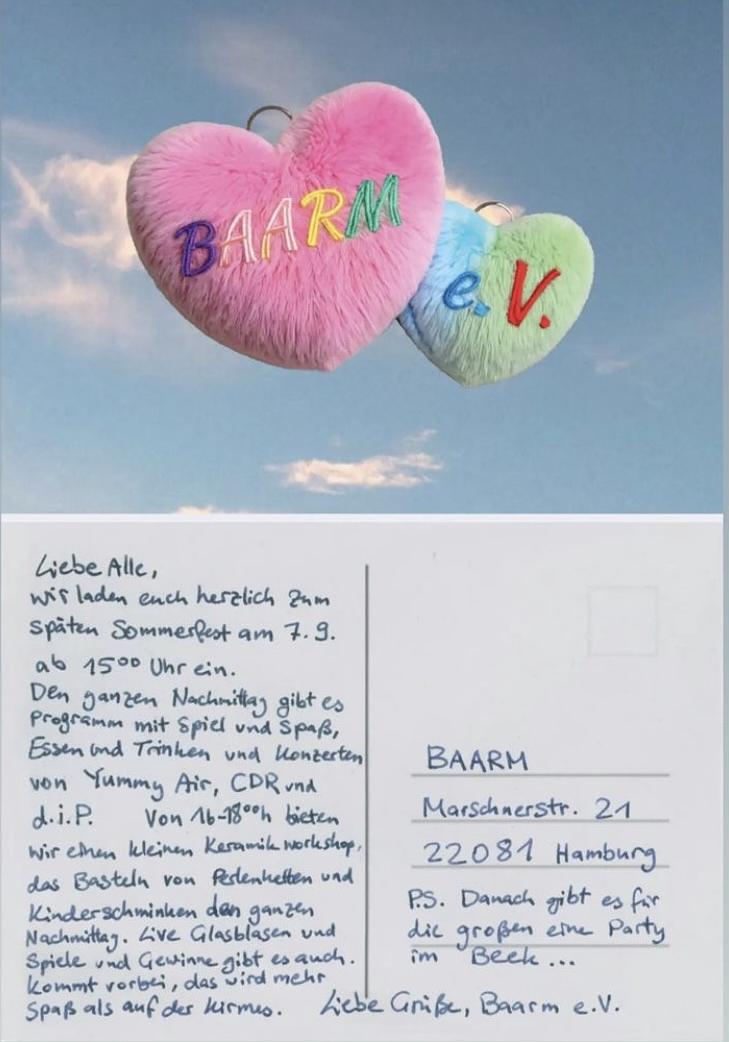 BAARM
e.V.
Liebe Alle,
wir laden euch herzlich zum
späten Sommerfest am 7.9.
ab 15⁰⁰ Uhr ein.
Den ganzen Nachmittag gibt es
Programm mit Spiel und Spaß,
Essen und Trinken und Konzerten
von Yummy Air, CDR und
d.i.P. Von 16-18⁰⁰h bieten
wir einen kleinen Keramikworkshop,
das Basteln von Perlenketten und
Kinderschminken den ganzen
Nachmittag. Live Glasblasen und
Spiele und Gewinne gibt es auch.
Kommt vorbei, das wird mehr
Spaß als auf der Kirmes.
BAARM
Marschnerstr. 21
22081 Hamburg
P.S. Danach gibt es für
die großen eine Party
im Beek...
Liebe Grüße, Baarm e.V.